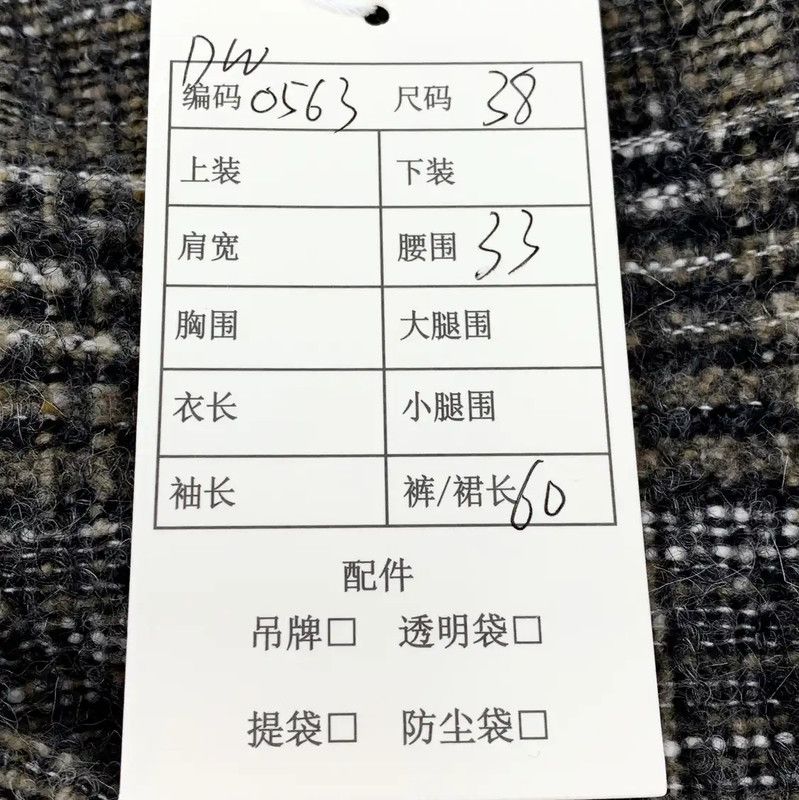 DW
编码 0563 尺码 38
上装 下装
肩宽 腰围 33
胸围 大腿围
衣长 小腿围
袖长 裤/裙长 60
配件
吊牌□ 透明袋□
提袋□ 防尘袋□